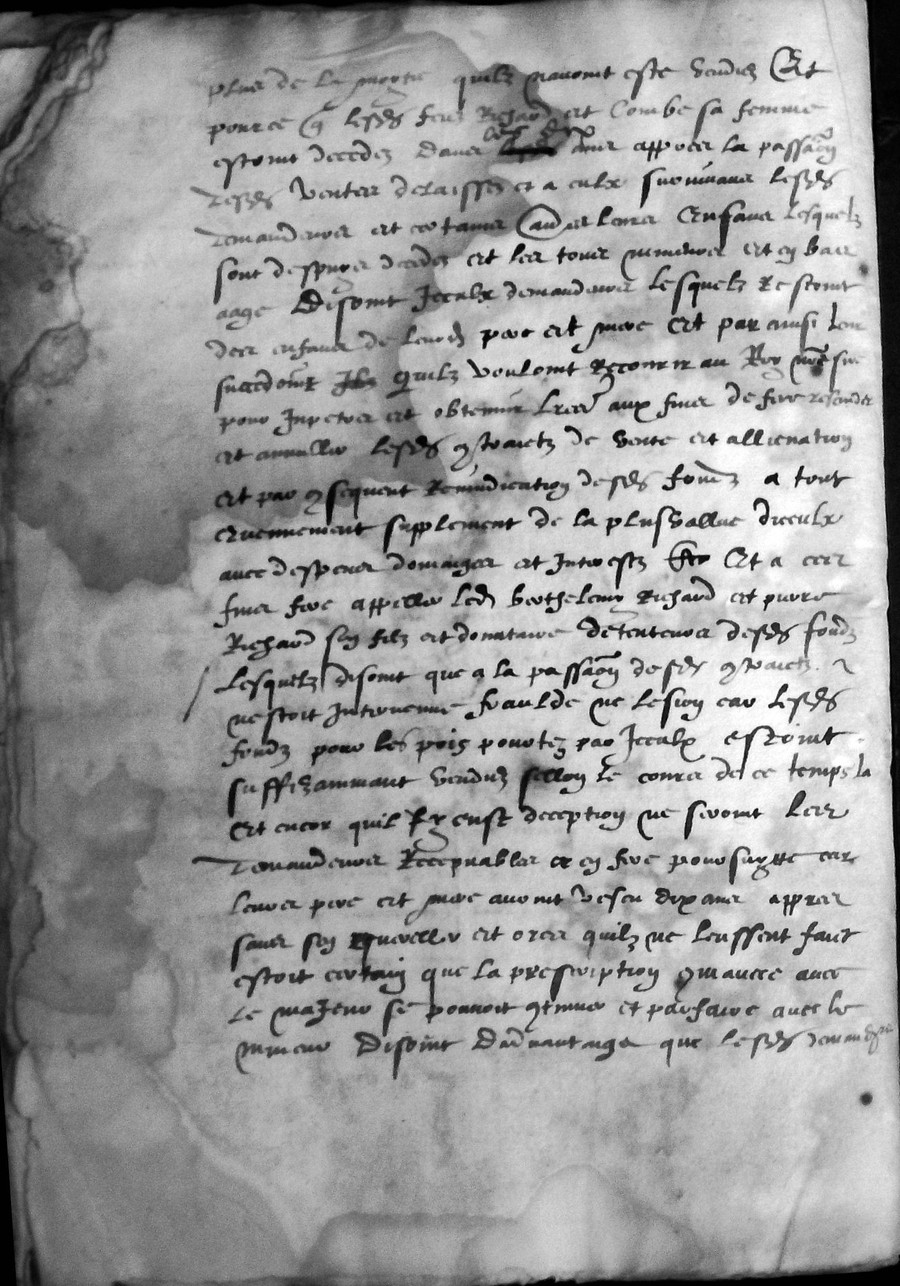 plus de la moytie quilz navoint este venduz Et
pource q lesds feuz Richard et Combe sa femme
estoint decedez dans les dix ans apprez la passaon
desds ventes delaissez et a eulx survivans lesds
demandeurs et certains aud̄es leurs Enfans lesquelz
sont despuys decedez et les tous myneurs et en bas
aage Disoint Iceulx demandeurs lesquelz Restoint
des enfans de leursd pere et mere Et par ainsi leur
succedoint quilz vouloint Recourir au Roy nre sire
pour Inpetrer et obtenir lres aux fins de fere rescinder
et annuller lesds contraictz de vente et allienation
et par consequent Revindication desds fondz a tout
evennement supplement de la plusvallue diceulx
avec despens domaiges et Interestz Et a ces
fins fere appeller led Berthelemy Richard et pierre
Richard son filz et donataire detenteurs desds fondz
Lesquelz disoint que a la passaon desds contraictz
nestoit Intervenue fraulde ne lesion car lesds
fondz pour les pris pourtez par Iceulx estoint
suffizammant venduz sellon le cours de ce temps la
Et encor quil y eust deception ne seroint les
demandeurs Recepvables et en fere poursuytte car
leurs pere et mere avoint vescu dix ans apprez
sans sen quereller et ores quilz ne leussent faict
estoit certain que la prescription commancee avec
le majeur se pouvoit continuer et parfaire avec le
myneur Disoint Davantaige que lesds demandrs